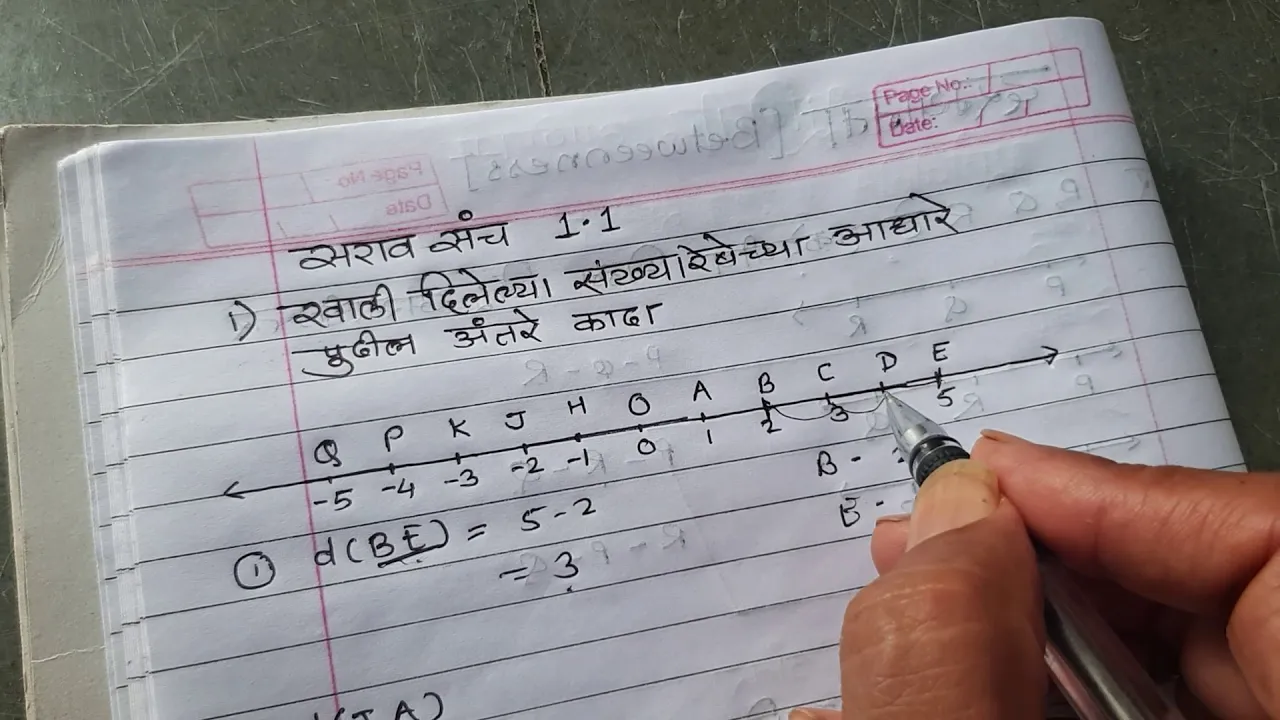 Page No.:
Date:
सराव संच 1.1
1) खाली दिलेल्या संख्यारेषेच्या आधारे
पुढील अंतरे काढा
Q P K J H O A B C D E
-5 -4 -3 -2 -1 0 1 2 3 5
B -
E -
① d(BE) = 5-2
= 3